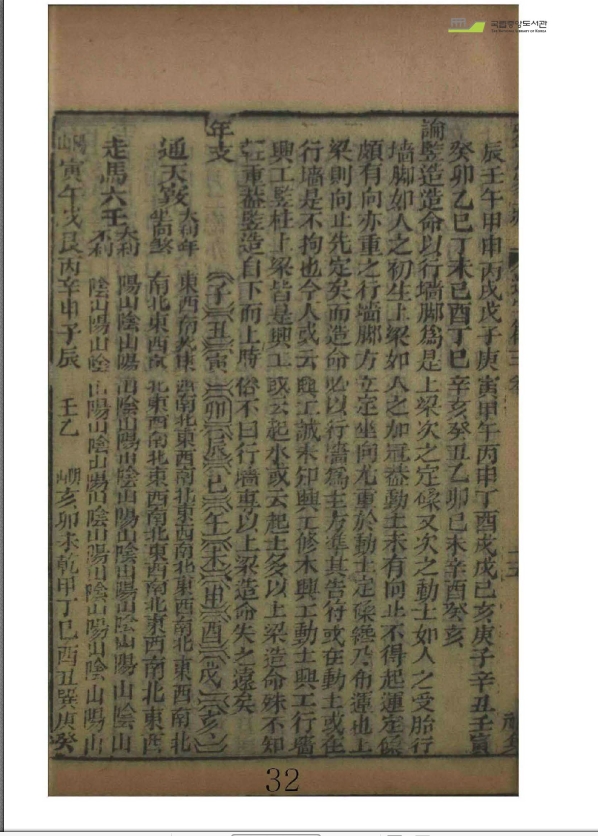 국립중앙도서관
THE NATIONAL LIBRARY OF KOREA
辰壬午甲申丙戌戊子庚寅甲午丙申丁酉戊戌己亥庚子辛丑壬寅
癸卯乙巳丁未己酉丁巳辛亥癸丑乙卯己未辛酉癸亥
論竪造造命以行墻脚爲是上梁次之定磉又次之動土如人之受胎行
墻脚如人之初生上梁如人之加冠葢動土未有向止不得起運定磉
頗有向亦重之行墻脚方立定坐向尤重於動土定磉乃命運也上
梁則向止先定矣而造命必以行墻爲主
行墻是不拘也今人或云興工誠未知興工修木興工動土興工行墻
興工竪柱上梁皆是興工或云起水或云起土多以上梁造命殊不知
重葢竪造自下而上時俗不曰行墻專以上梁造命失之遠矣
年支 子 丑 寅 卯 辰 巳 午 未 申 酉 戌 亥
通天竅 大利年 東西南北東西南北東西南北
坐向煞 南北東西南北東西南北東西
走馬六壬 大利 陽山陰山陽山陰山陽山陰山陽山陰山陽山陰山
不利 陰山陽山陰山陽山陰山陽山陰山陽山陰山陽山
陽山 寅午戌艮丙辛申子辰 壬乙
陰山 亥卯未乾甲丁巳酉丑巽庚癸
32